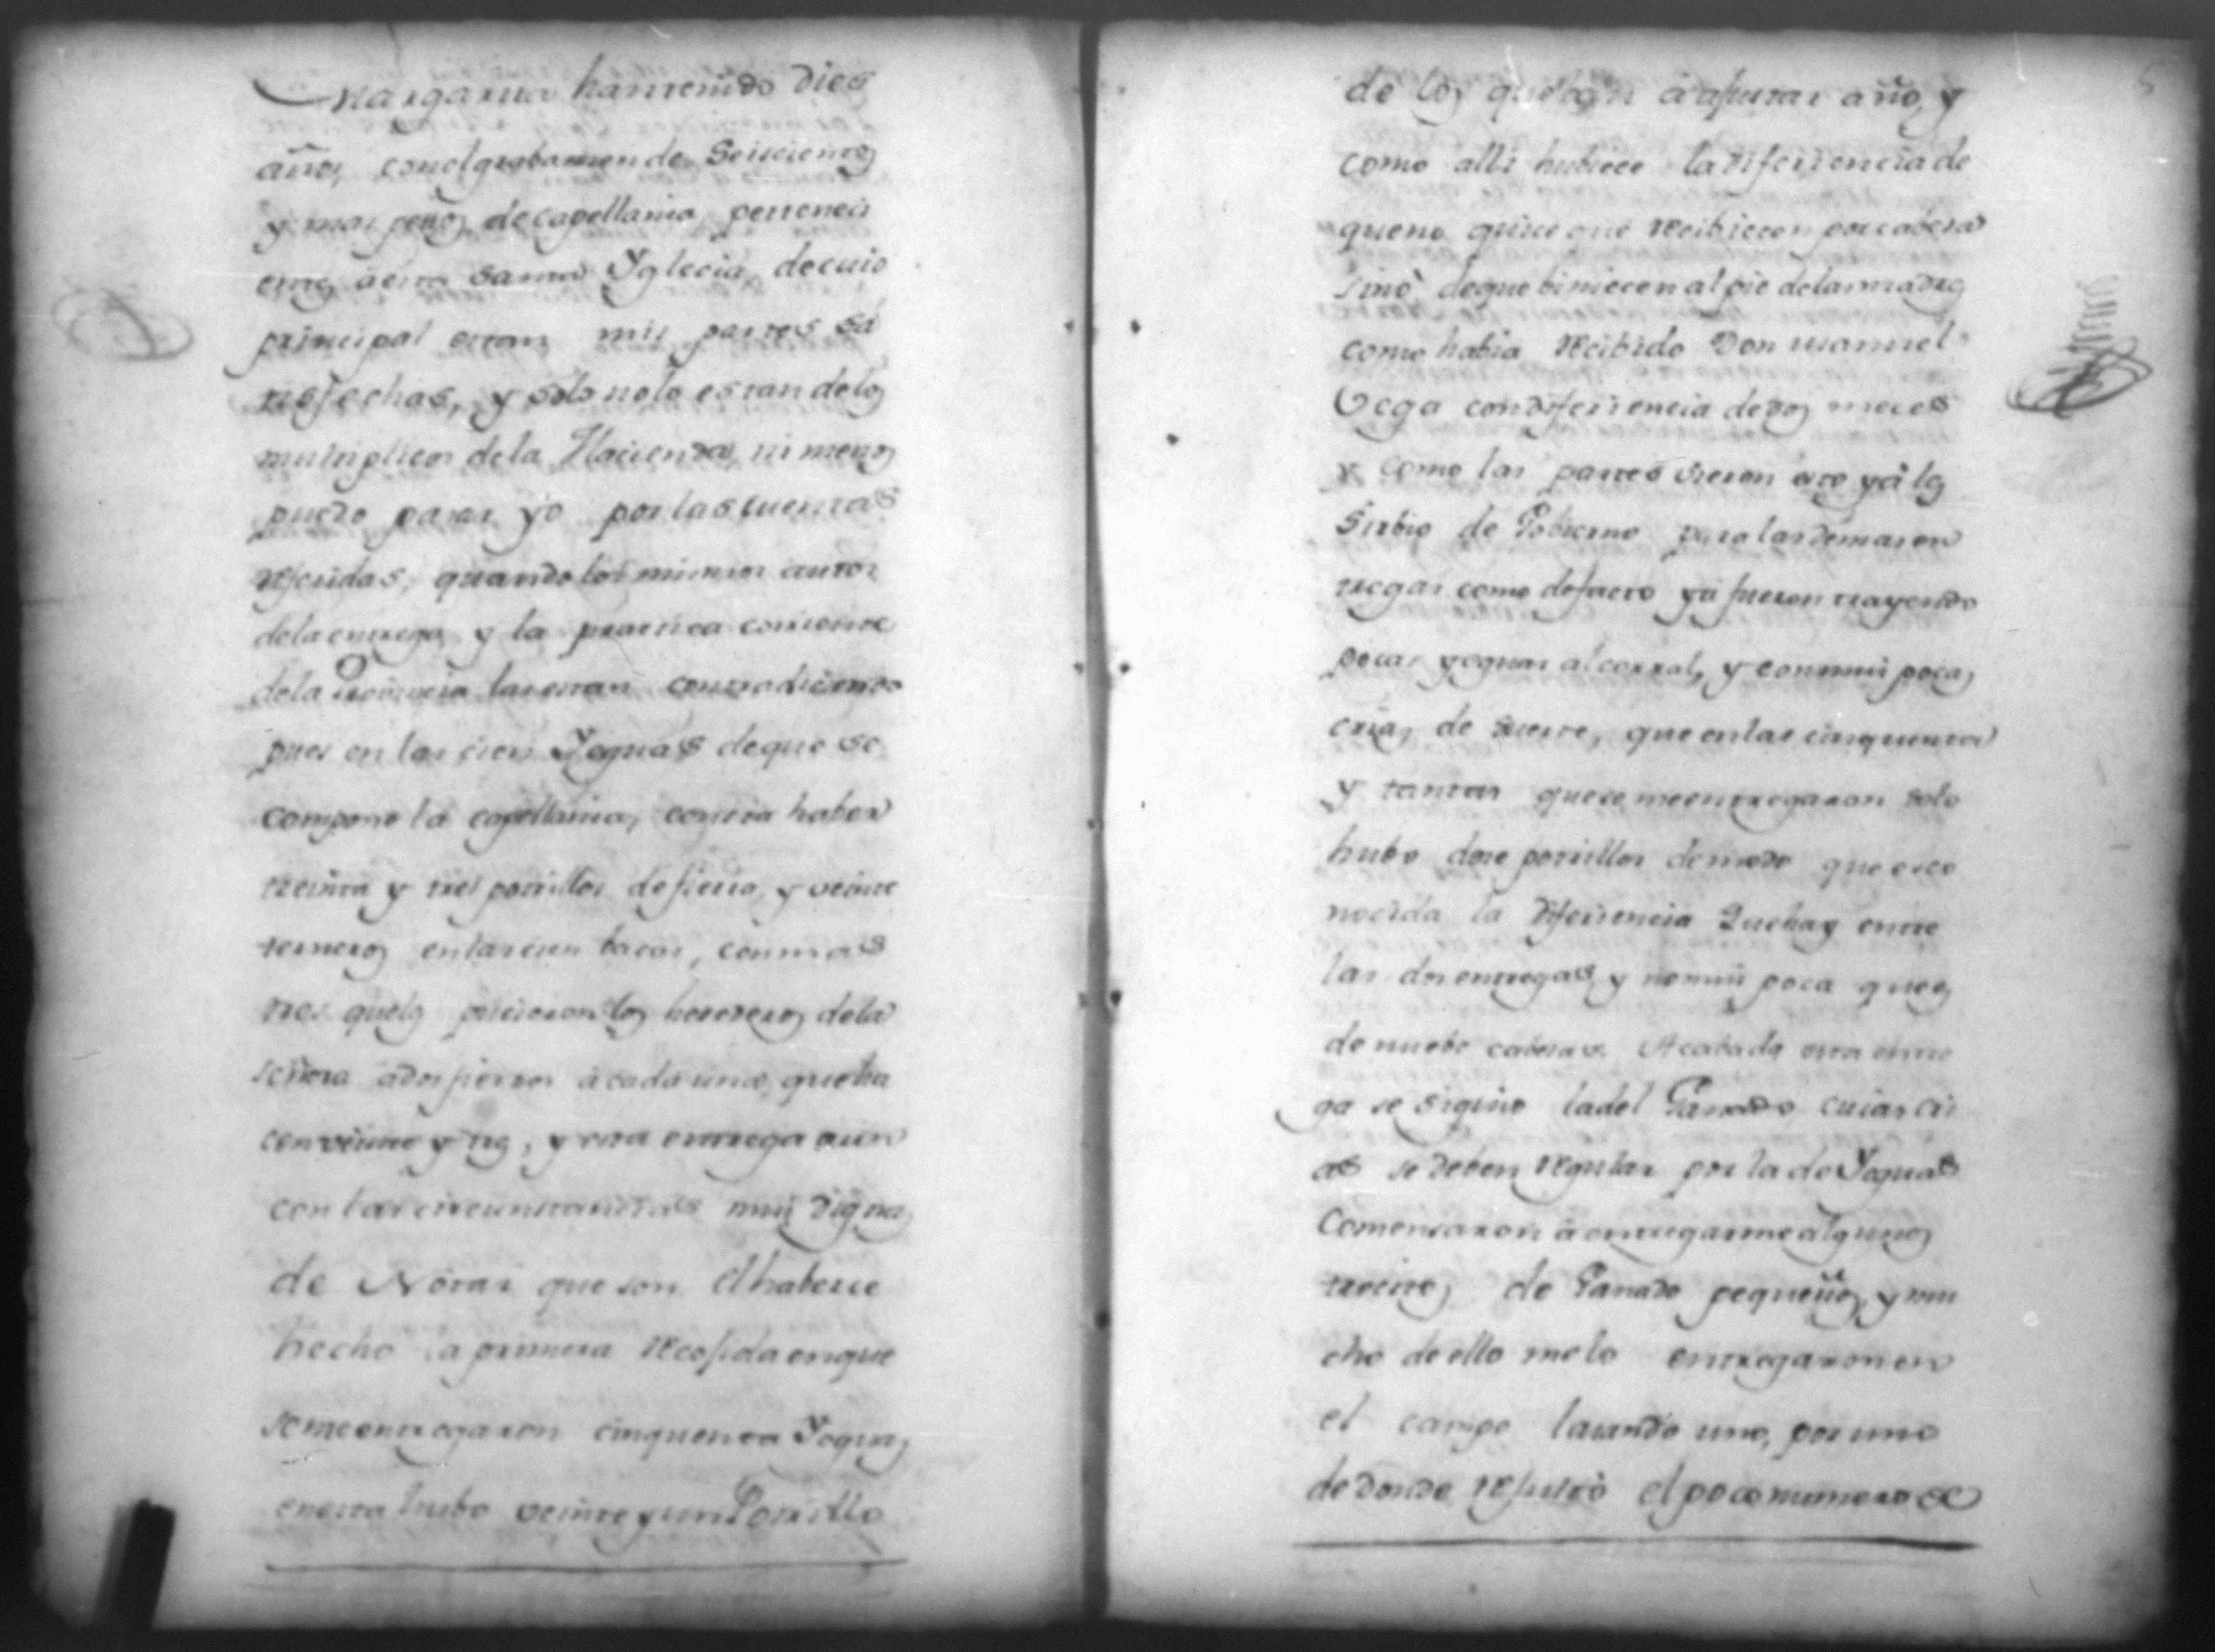 Margarita han tenido dies
años, con el grabamen de Seiscientos
y mas pesos, de capellania, perteneci
entes, a esta santa Yglecia, de cuio
principal estan mis partes sa
tisfechas, y solo no lo estan de los
multiplicos de la Hacienda, ni menos
puedo pasar yo por las cuentas
referidas, quando los mismos autos
de la entrega, y la practica corriente
de la Provincia las estan contradiciendo
pues en las cien Yeguas de que se
compone la capellania, consta haber
treinta y tres potrillos de fierro, y veinte
terneros en las cien bacas, con mas
tres que los pusieron los herederos de la
señora a dos pessos à cada uno, que ha
cen veinte y tres, y esta entrega aun
con las circunstancias mui dignas
de Nótar que son el haberse
hecho la primera recojida en que
se me entregaron cinquenta Yeguas
en esta hubo veinte y un Potrillo
5
de los que ban à apurar año, y
como alli hubiece la diferiencia de
que no quise que recibiecen por cabesa
sinó deque biniecen al pie de las madres
como habia recibido Don Manuel
Vega con diferiencia de dos meces
y como las partes vieron esto ya les
Sirbio de Gobierno para las demas en
tregas como defacto ya fueron trayendo
pocas yeguas al corral, y con mui pocas
crias, de suerte, que en las cinquenta
y tantas que se me entregaron solo
hubo dose potrillos de modo que es co
nocida la diferiencia Que hay entre
las dos entregas, y no mui poca que es
de nuebe cabesas. Acabada esta entre
ga se siguio la del Ganado, cuias cri
as se deben regular por la de Yeguas
Comensaron à entregarme algunos
trocitos de Ganado pequeños, y mu
cho de ello me lo entregaron en
el campo lasando uno, por uno
de donde resultó el poco numero de